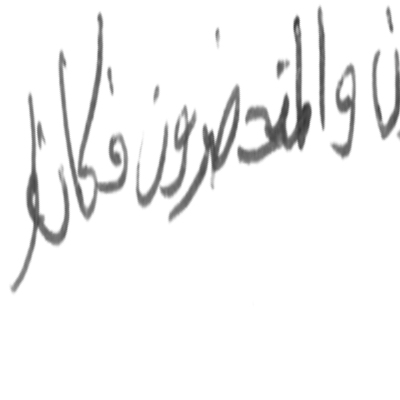 والمتحضرون فكان